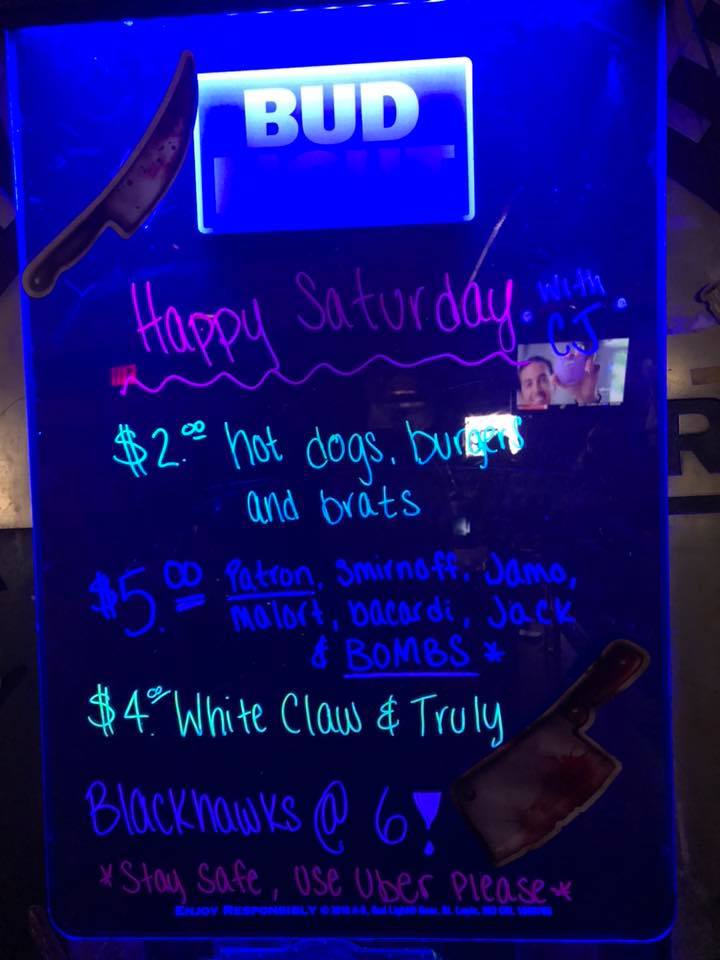 BUD
LIGHT
Happy Saturday
with
CJ
$2.00 hot dogs, burgers
and brats
$5.00 Patron, Smirnoff, Jamo,
malort, bacardi, Jack
& BOMBS *
$4.00 White Claw & Truly
Blackhawks @ 6!
*Stay Safe, use Uber Please*
ENJOY RESPONSIBLY
R